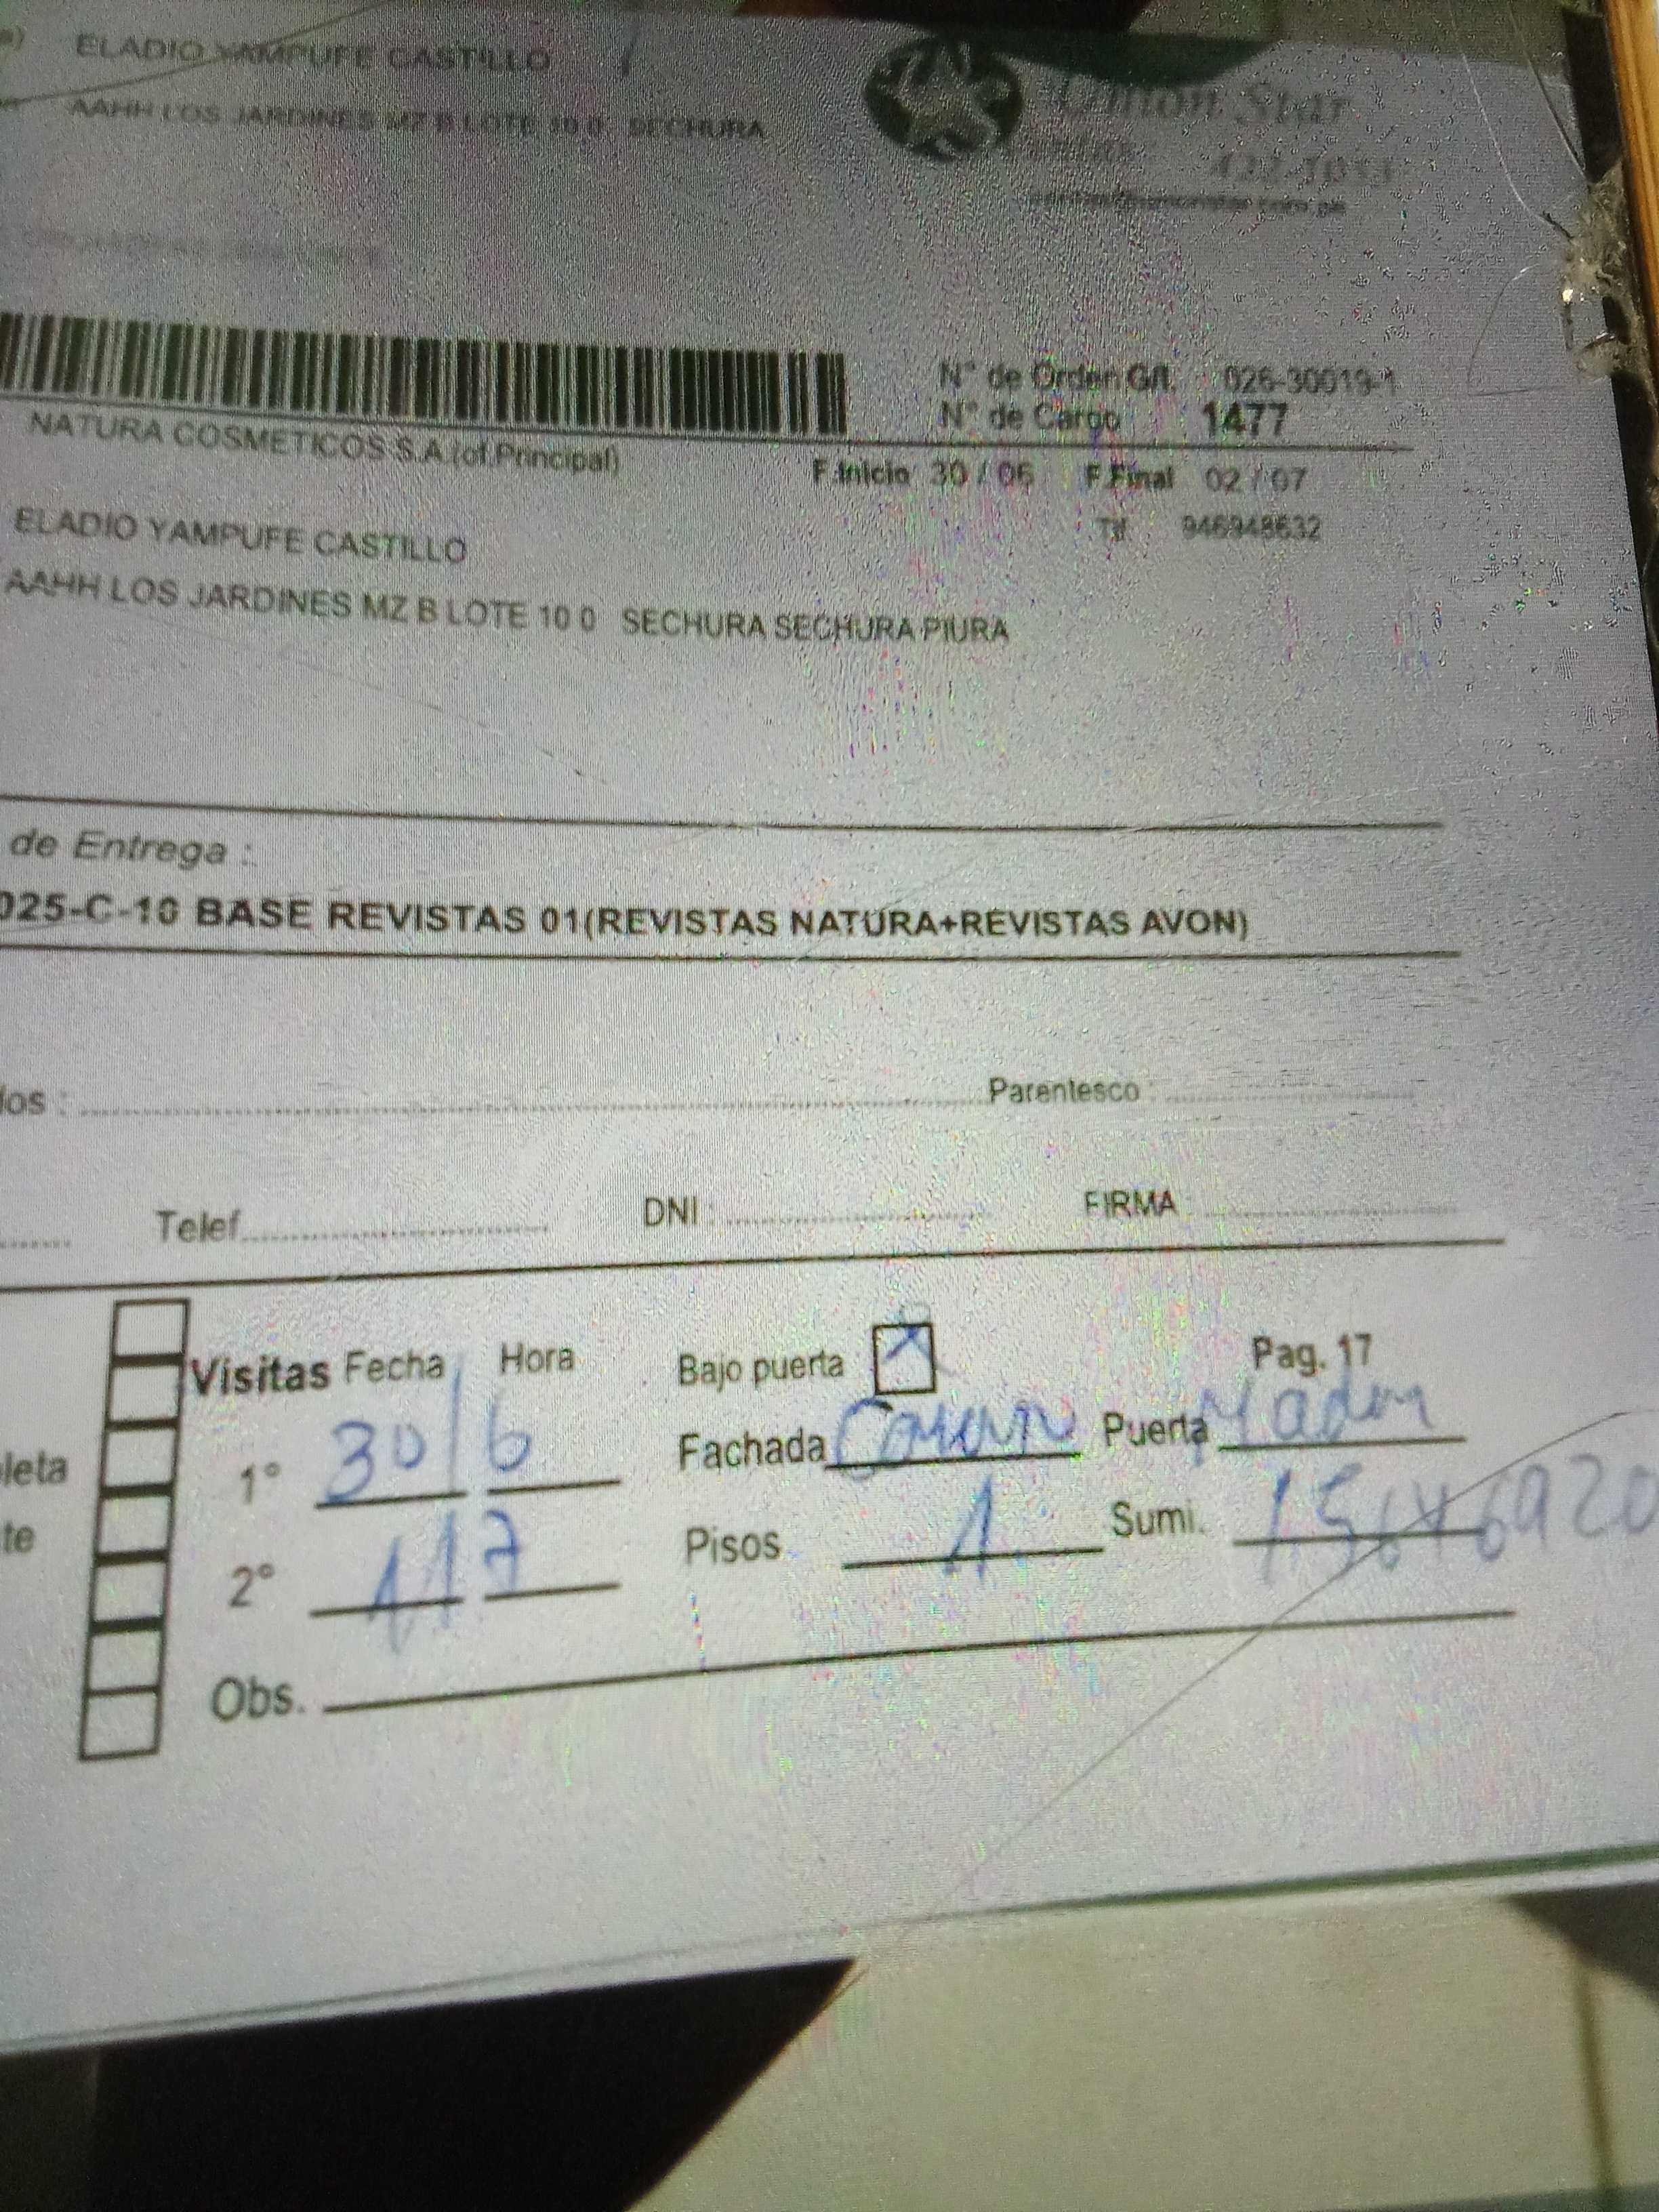 ELADIO YAMPUFE CASTILLO
AAHH LOS JARDINES MZ B LOTE 10 0 SECHURA
Union Star
N° de Orden G/I. 026-30019-1
N° de Cargo 1477
NATURA COSMETICOS S.A.(of.Principal)
F.Inicio 30 / 06 F.Final 02 / 07
ELADIO YAMPUFE CASTILLO
Tlf. 946948632
AAHH LOS JARDINES MZ B LOTE 10 0 SECHURA SECHURA PIURA
de Entrega :
025-C-10 BASE REVISTAS 01(REVISTAS NATURA+REVISTAS AVON)
dos : Parentesco :
Telef. DNI : FIRMA :
Visitas Fecha Hora Bajo puerta Pag. 17
1° 30/6 Fachada Puerta Mader
2° 1/7 Pisos 1 Sumi. 15646920
leta
te
Obs.